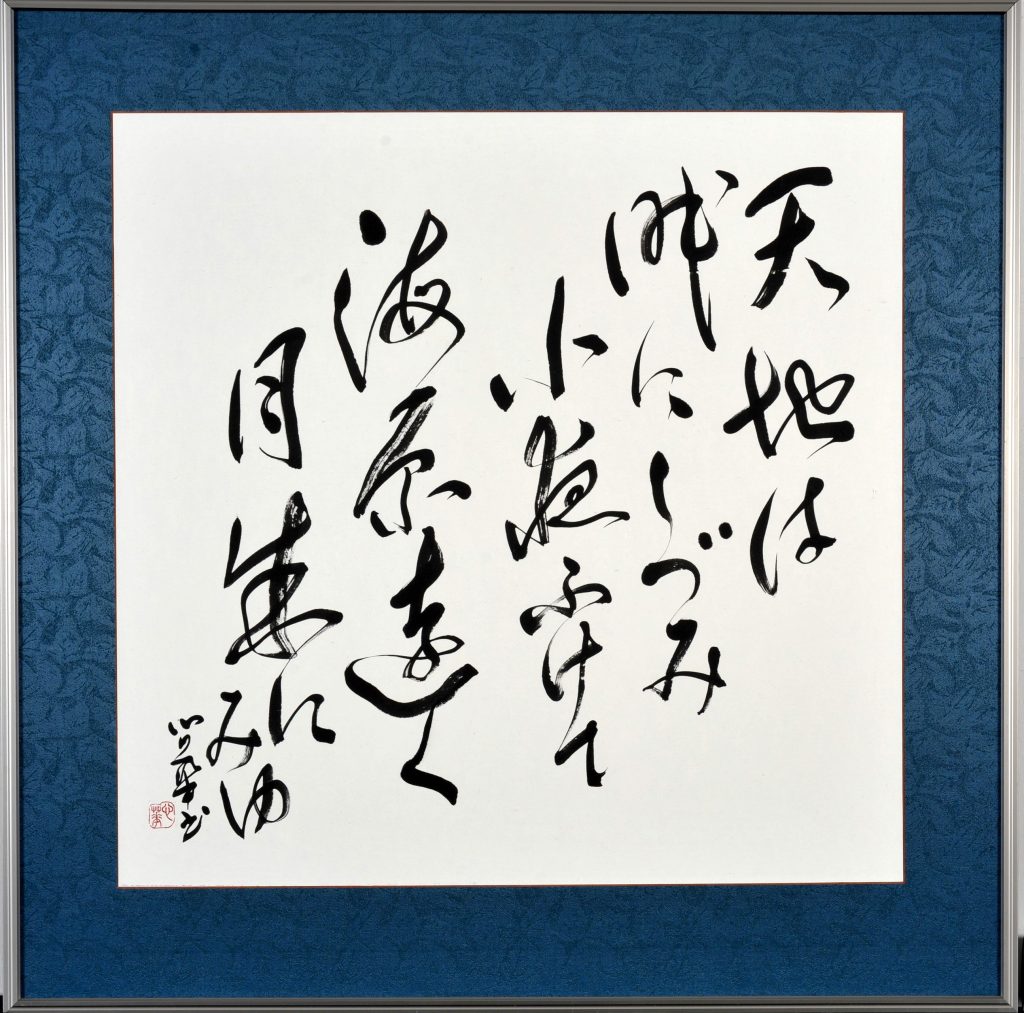 天地は
眠にしづみ
小夜ふけて
海原遠く
月朱にみゆ
心華書